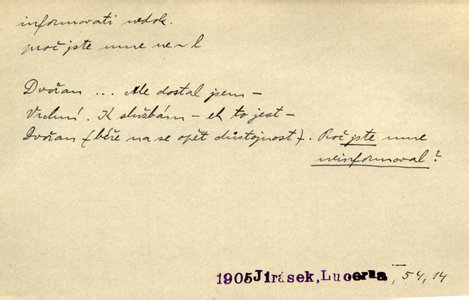 informovati nedok.
proč jste mne ne~l
Dvořan ... Ale dostal jsem –
Vrchní. K službám – eh to jest –
Dvořan (béře na se opět důstojnost). Proč jste mne
neinformoval?
1905 Jirásek, Lucerna, 54, 14